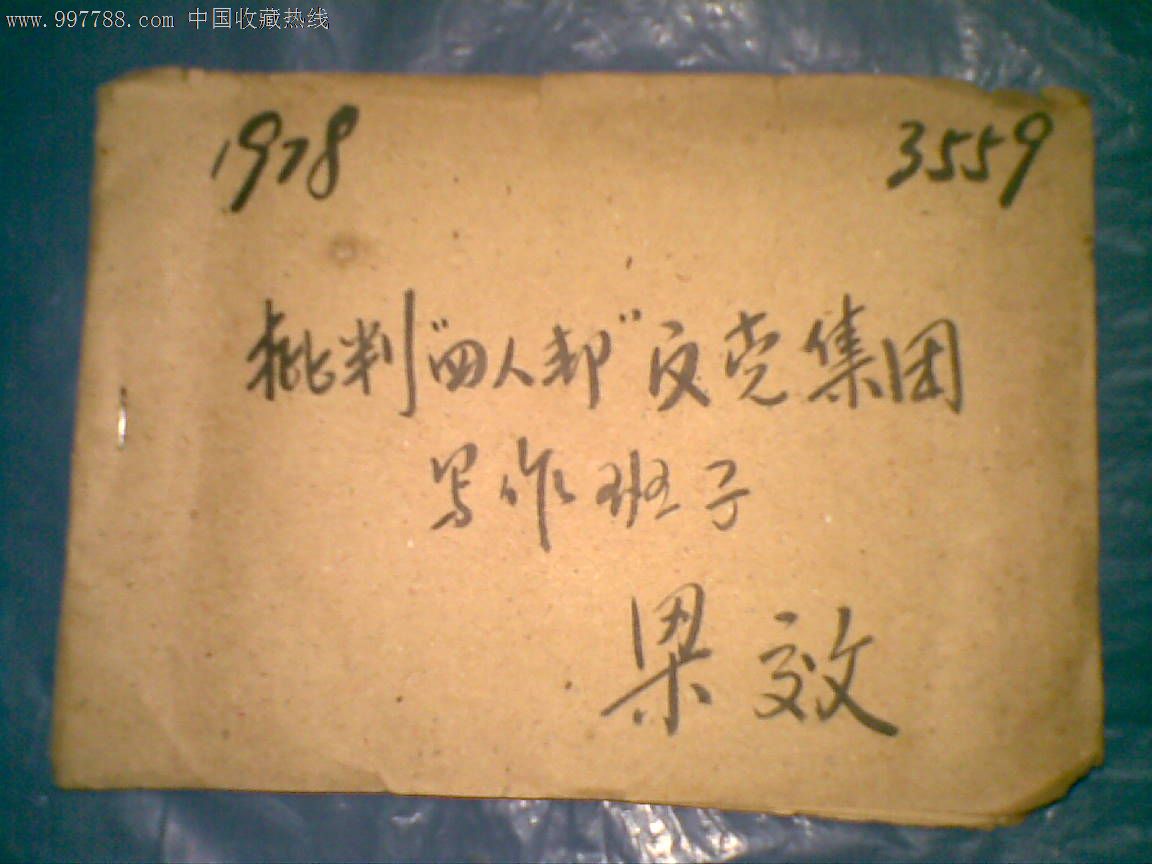 www.997788.com 中国收藏热线
1978 3559
批判“四人邦”反党集团
写作班子
梁效